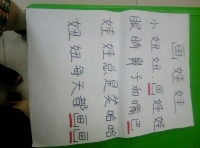 画娃娃
小妞妞画娃娃
眼睛鼻子和嘴巴
娃娃总是笑哈哈
妞妞每天都画画